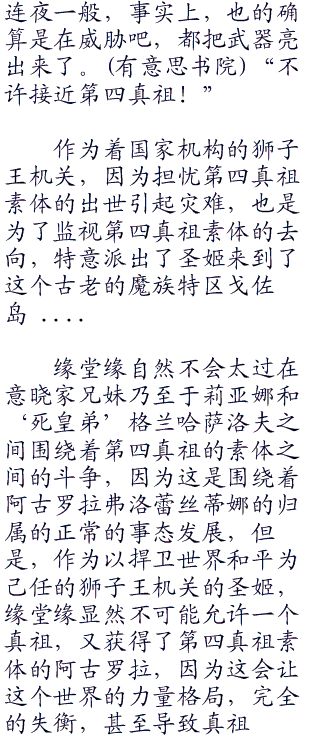 连夜一般，事实上，也的确
算是在威胁吧，都把武器亮
出来了。(有意思书院)“不
许接近第四真祖！”
作为着国家机构的狮子
王机关，因为担忧第四真祖
素体的出世引起灾难，也是
为了监视第四真祖素体的去
向，特意派出了圣姬来到了
这个古老的魔族特区戈佐
岛 ....
缘堂缘自然不会太过在
意晓家兄妹乃至于莉亚娜和
‘死皇弟’格兰哈萨洛夫之
间围绕着第四真祖的素体之
间的斗争，因为这是围绕着
阿古罗拉弗洛蕾丝蒂娜的归
属的正常的事态发展，但
是，作为以捍卫世界和平为
己任的狮子王机关的圣姬，
缘堂缘显然不可能允许一个
真祖，又获得了第四真祖素
体的阿古罗拉，因为这会让
这个世界的力量格局，完全
的失衡，甚至导致真祖